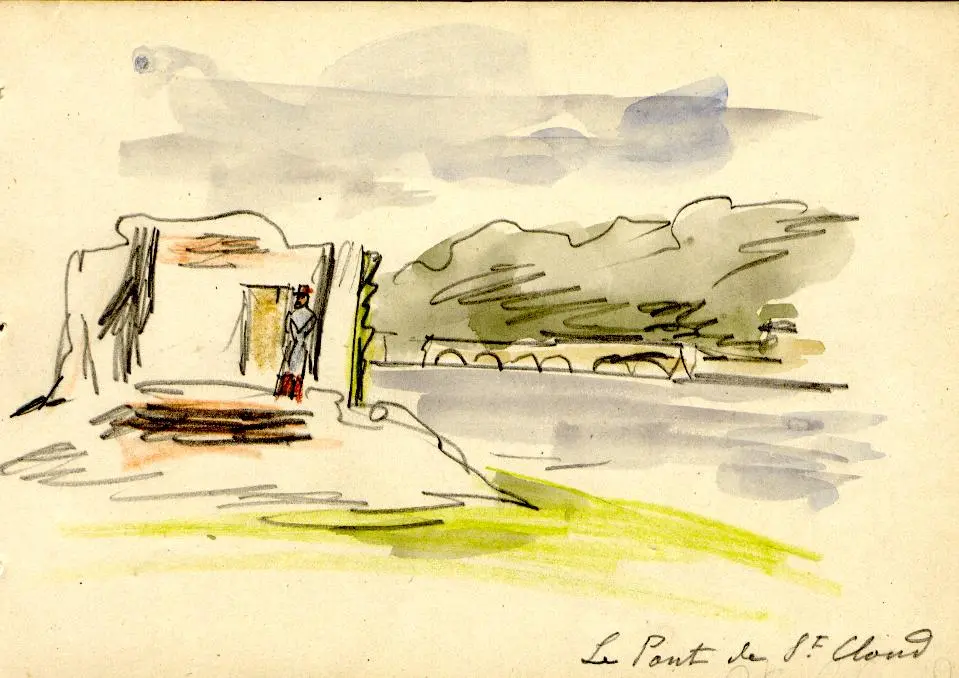 Le Pont de St Cloud